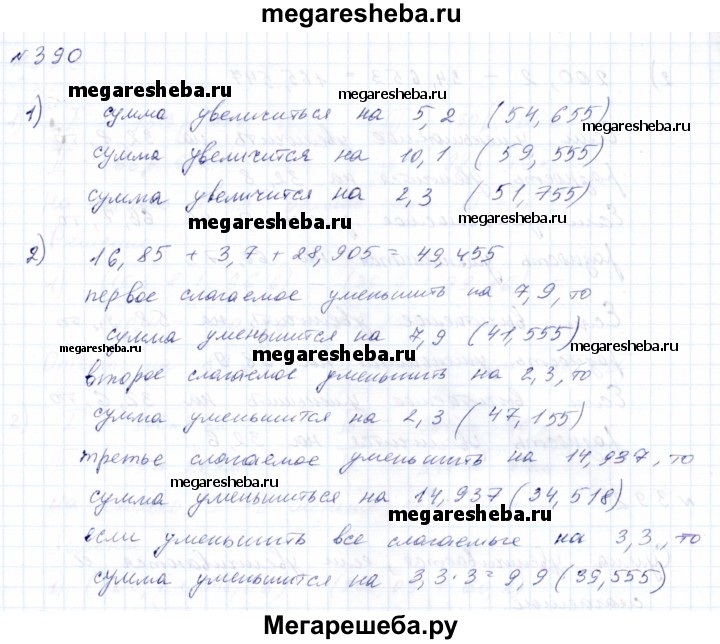 megaresheba.ru
№ 390
megaresheba.ru
megaresheba.ru
1) сумма увеличиться на 5,2 (54,655)
megaresheba.ru
сумма увеличится на 10,1 (59,555)
сумма увеличится на 2,3 (51,755)
megaresheba.ru
megaresheba.ru
2) 16,85 + 3,7 + 28,905 = 49,455
первое слагаемое уменьшить на 7,9, то
сумма уменьшится на 7,9 (41,555)
megaresheba.ru
megaresheba.ru
megaresheba.ru
второе слагаемое уменьшить на 2,3, то
сумма уменьшится на 2,3 (47,155)
третье слагаемое уменьшить на 14,937, то
megaresheba.ru
сумма уменьшиться на 14,937 (34,518)
megaresheba.ru
если уменьшить все слагаемые на 3,3, то
сумма уменьшится на 3,3·3=9,9 (39,555)
Мегарешеба.ру